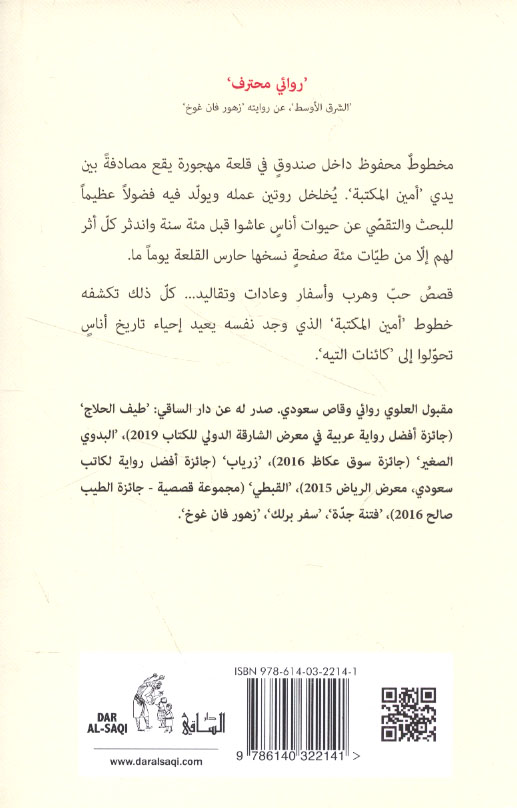 ’روائي محترف‘
’الشرق الأوسط‘، عن روايته ’زهور فان غوخ‘
مخطوطٌ محفوظ داخل صندوقٍ في قلعة مهجورة يقع مصادفةً بين
يدي ’أمين المكتبة‘. يُخلخل روتين عمله ويولّد فيه فضولاً عظيماً
للبحث والتقصّي عن حيوات أناسٍ عاشوا قبل مئة سنة واندثر كلّ أثر
لهم إلّا من طيّات مئة صفحةٍ نسخها حارس القلعة يوماً ما.
قصصُ حبّ وهرب وأسفار وعادات وتقاليد... كلّ ذلك تكشفه
خطوط ’أمين المكتبة‘ الذي وجد نفسه يعيد إحياء تاريخ أناسٍ
تحوّلوا إلى ’كائنات التيه‘.
مقبول العلوي روائي وقاص سعودي. صدر له عن دار الساقي: ’طيف الحلاج‘
(جائزة أفضل رواية عربية في معرض الشارقة الدولي للكتاب 2019)، ’البدوي
الصغير‘ (جائزة سوق عكاظ 2016)، ’زرياب‘ (جائزة أفضل رواية لكاتب
سعودي، معرض الرياض 2015)، ’القبطي‘ (مجموعة قصصية - جائزة الطيب
صالح 2016)، ’فتنة جدّة‘، ’سفر برلك‘، ’زهور فان غوخ‘.
ISBN 978-614-03-2214-1
DAR
AL-SAQI
دار
الساقي
www.daralsaqi.com
9 786140 322141 >